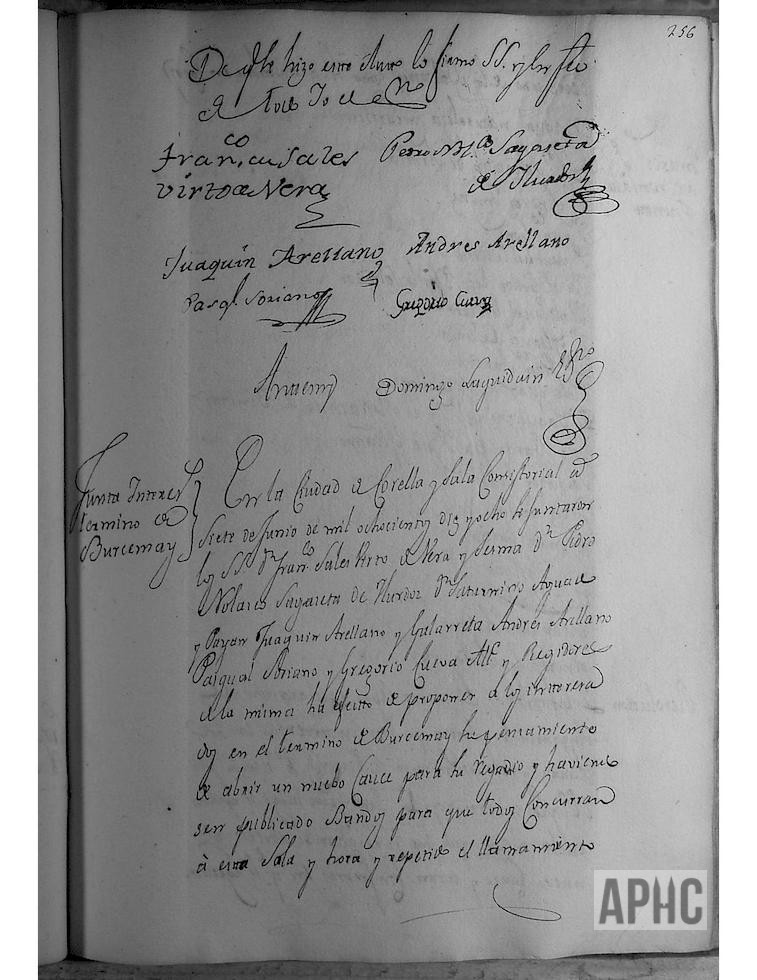 256
De q.e se hizo este Auto lo firmo SS. y
Fran.co de Sales Pedro N.co Sagaseta
Virto de Vera de Ilurdoz
Juaquin Arellano Andres Arellano
Pasq.l Soriano Gregorio Cueva
Antemi Domingo Laquidain Es.no
Junta Interes.s
termino de
Burcemay
En la Ciudad de Corella y Sala Consistorial a
Siete de Junio de mil ochocientos diez y ocho se Juntaron
los SS. D.n Fran.co Sales Virto de Vera y Lesma D.n Pedro
Nolasco Sagaseta de Ilurdoz D.n Saturnino Aguado
y Payan Juaquin Arellano y Galarreta Andres Arellano
Pasqual Soriano y Gregorio Cueva Alc.e y Regidores
de la misma ha efecto de proponer a los interesa
dos en el termino de Burcemay he pensamiento
de abrir un nuebo Cauce para su Regadio y haviendo
sen publicado Bandos para que todos Concurran
à esta Sala y hora y repetido el llamamiento
APHC